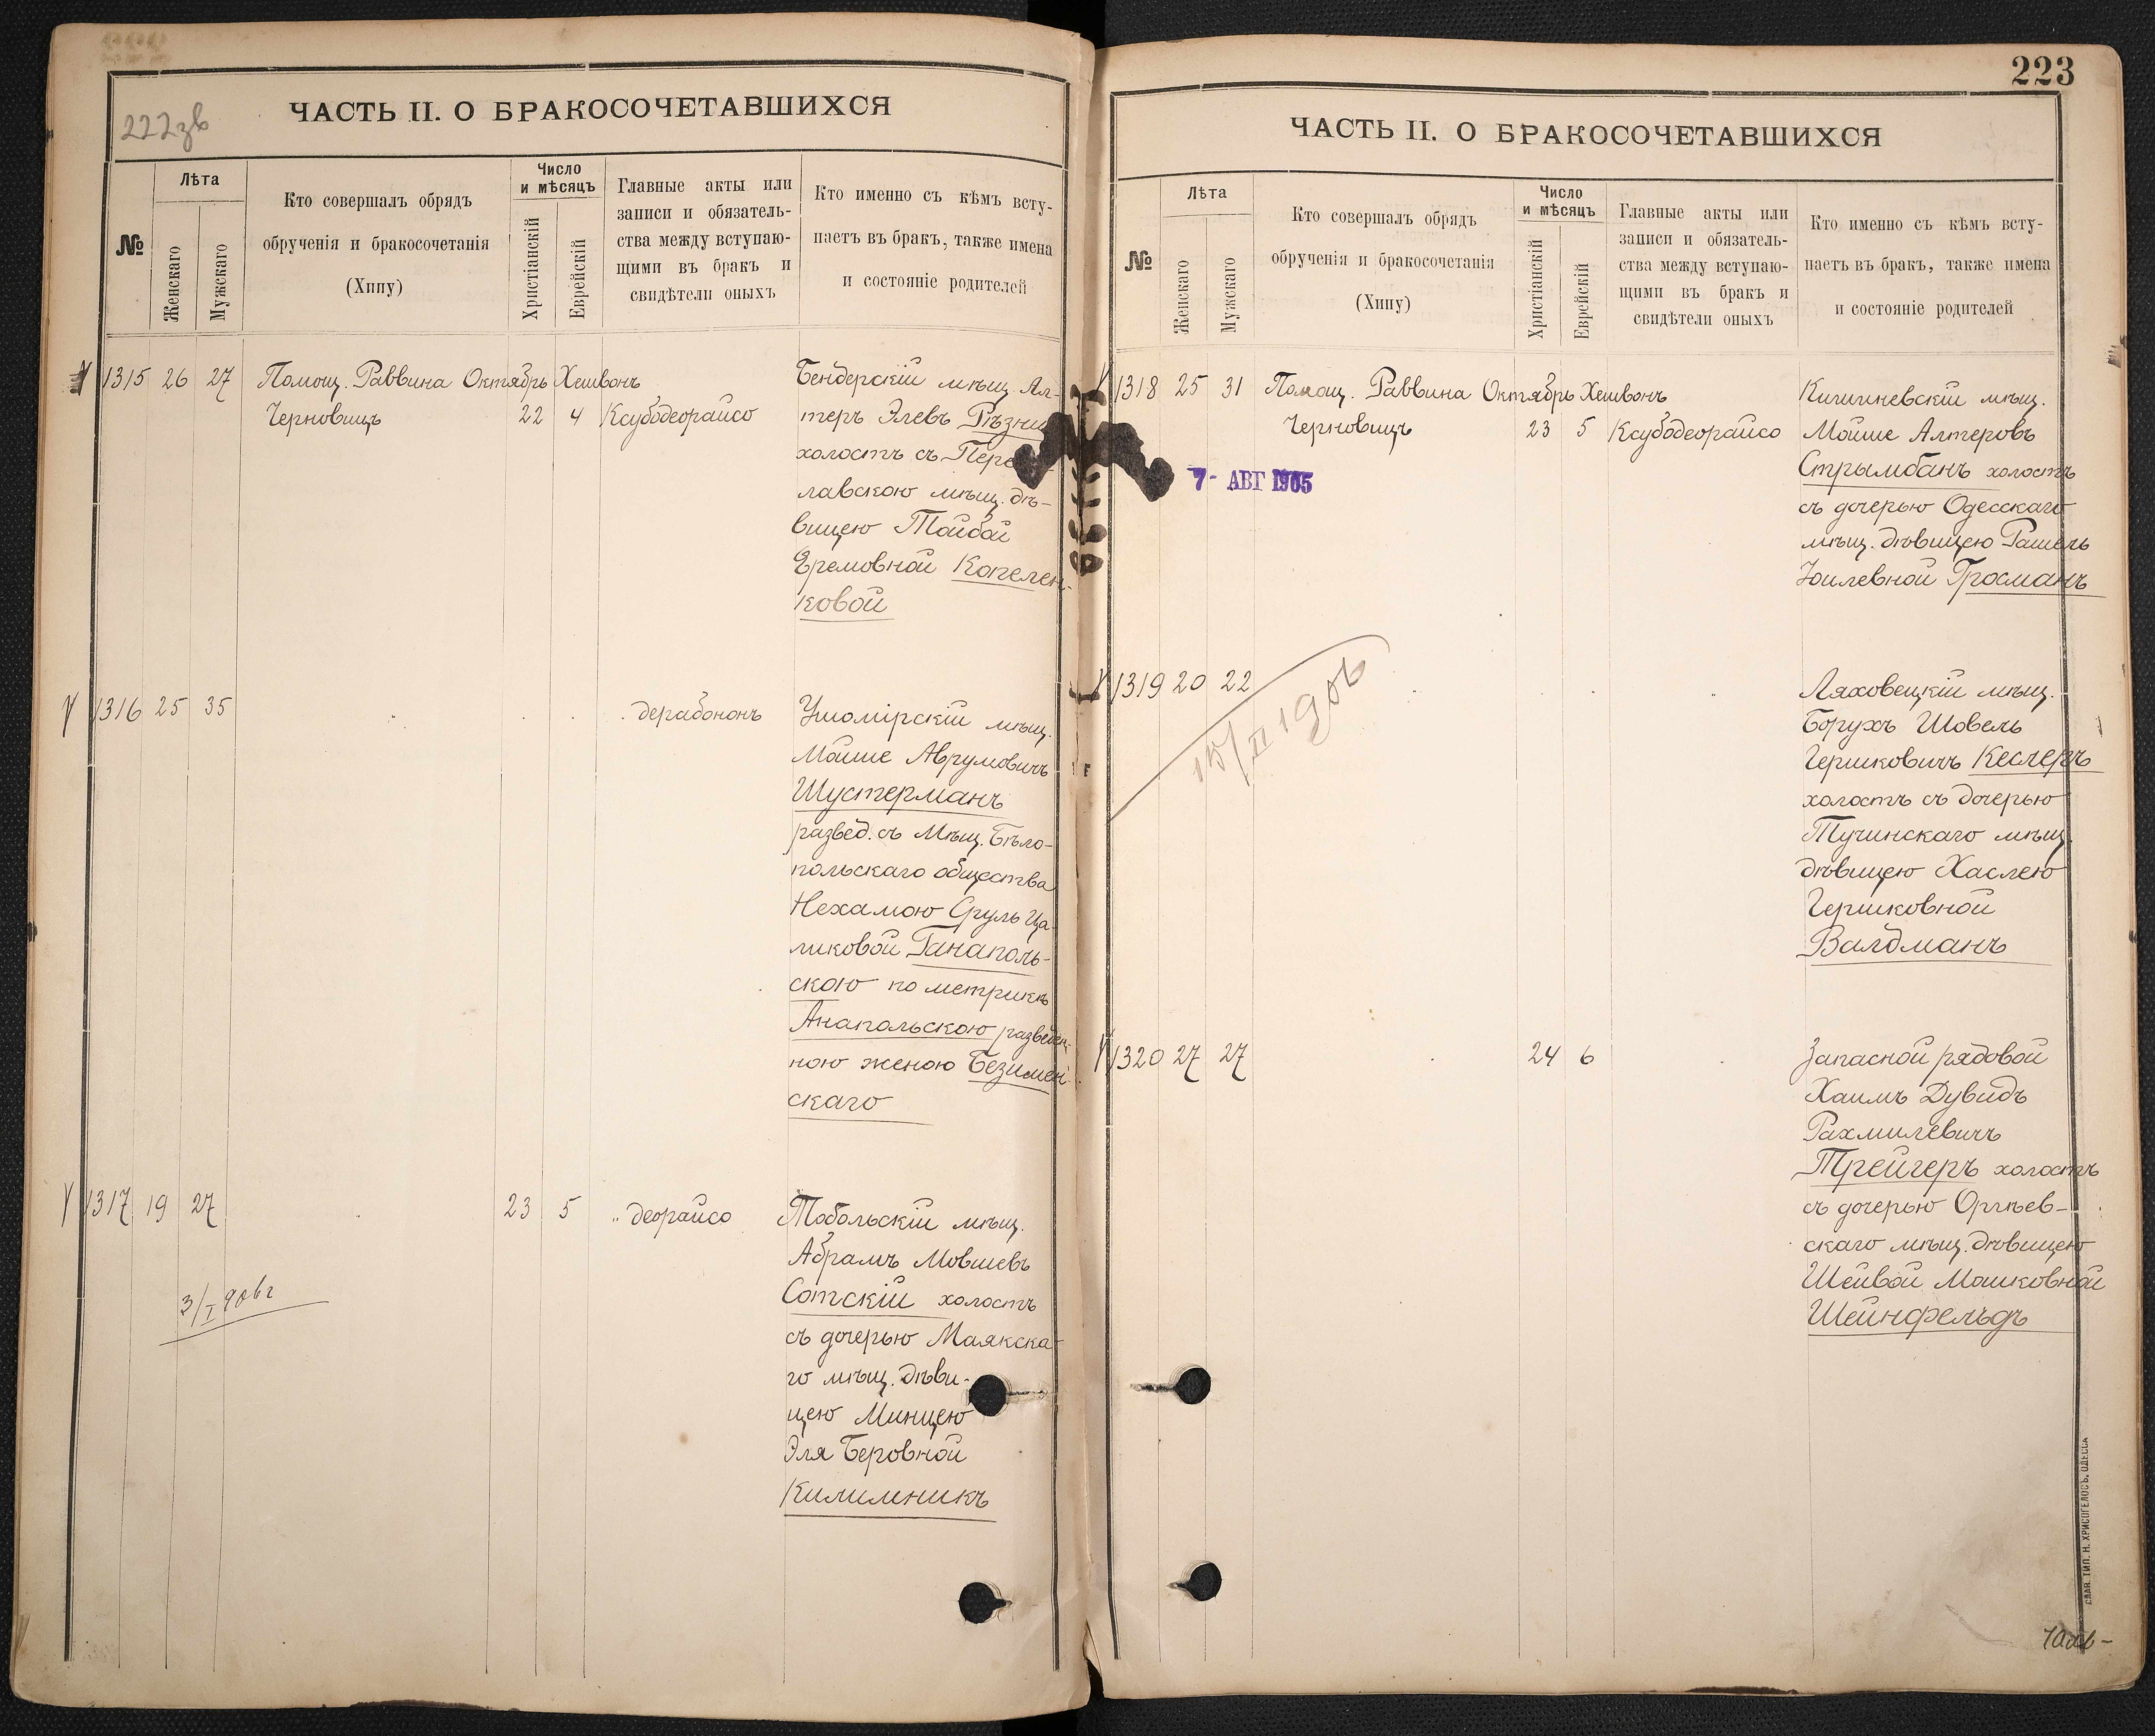 222зв
ЧАСТЬ II. О БРАКОСОЧЕТАВШИХСЯ
№
Лѣта
Женскаго
Мужскаго
Кто совершалъ обрядъ
обрученія и бракосочетанія
(Хипу)
Число
и мѣсяцъ
Христіанскій
Еврейскій
Главные акты или
записи и обязатель-
ства между вступаю-
щими въ бракъ и
свидѣтели оныхъ
Кто именно съ кѣмъ всту-
паетъ въ бракъ, также имена
и состояніе родителей
1315 26 27 Помощ. Раввина Октябрь Хешвонъ
Черновицъ 22 4 Ксубодеорайсо
Бендерскій мѣщ. Ал-
теръ Элевъ Рѣзни
холостъ съ Пере
лавскою мѣщ. дѣ-
вицею Тойбой
Еремовной Копелен-
ковой
1316 25 35 дерабононъ
Ушомірскій мѣщ.
Мойше Аврумовичъ
Шустерманъ
развед. съ Мѣщ. Бѣло-
польскаго общества
Нехамою Сруль Ца-
ликовой Ганаполь-
скою по метрикѣ
Анапольскою разведен-
ною женою Безимен-
скаго
1317 19 27 23 5 " деорайсо
Тобольскій мѣщ.
Абрамъ Мовшевъ
Сотскій холостъ
съ дочерью Маякска-
го мѣщ. дѣви-
цею Минцею
Эля Беровной
Килимникъ
3/I 906г
223
ЧАСТЬ II. О БРАКОСОЧЕТАВШИХСЯ
№
Лѣта
Женскаго
Мужскаго
Кто совершалъ обрядъ
обрученія и бракосочетанія
(Хипу)
Число
и мѣсяцъ
Христіанскій
Еврейскій
Главные акты или
записи и обязатель-
ства между вступаю-
щими въ бракъ и
свидѣтели оныхъ
Кто именно съ кѣмъ всту-
паетъ въ бракъ, также имена
и состояніе родителей
1318 25 31 Помощ. Раввина Октябрь Хешвонъ
Черновицъ 23 5 Ксубодеорайсо
7- АВГ 1905
Кишиневскій мѣщ.
Мойше Алтеровъ
Стрымбанъ холостъ
съ дочерью Одесскаго
мѣщ. дѣвицею Рашель
Юилевной Гросманъ
1319 20 22
15/II 1906
Ляховецкій мѣщ.
Борухъ Шовель
Гершковичъ Кеслеръ
холостъ съ дочерью
Тучинскаго мѣщ.
дѣвицею Хаслею
Гершковной
Валдманъ
1320 27 27 24 6
Запасной рядовой
Хаимъ Дувидъ
Рахмилевичъ
Трейгеръ холостъ
съ дочерью Оргѣев-
скаго мѣщ. дѣвицею
Шейвой Мошковной
Шейнфельдъ
СЛАВ. ТИП. Н. ХРИСОГЕЛОСЪ, ОДЕССА